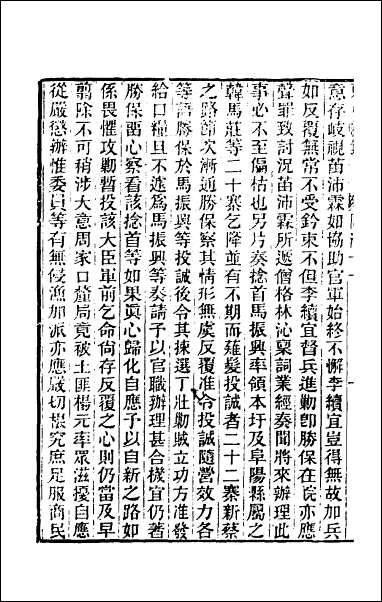 意存歧視苗沛霖如協助官軍始終不懈李續宜豈得無故加兵
如反覆無常不受鈐束不但李續宜督兵進勦卽勝保在皖亦應
聲罪致討況苗沛霖所遞僧格林沁稟詞業經奏聞將來辦理此
事必不至偏枯也另片奏捻首馬振興率領本圩及阜陽縣屬之
韓馬莊等二十寨乞降並有不期而薙髮投誠者二十二寨新蔡
之路節次漸通勝保察其情形無虞反覆准令投誠隨營效力各
等語勝保於馬振興等投誠後令其揀選丁壯勦賊立功方准發
給口糧且不遽爲馬振興等奏請予以官職辦理甚合機宜仍著
勝保密心察看該捻首等如果眞心歸化自應予以自新之路如
係畏懼攻勦暫投該大臣軍前乞命尙存反覆之心則仍當及早
翦除不可稍涉大意周家口釐局竟被土匪楊元率眾滋擾自應
從嚴懲辦惟委員等有無侵漁加派亦應嚴切根究庶足服商民